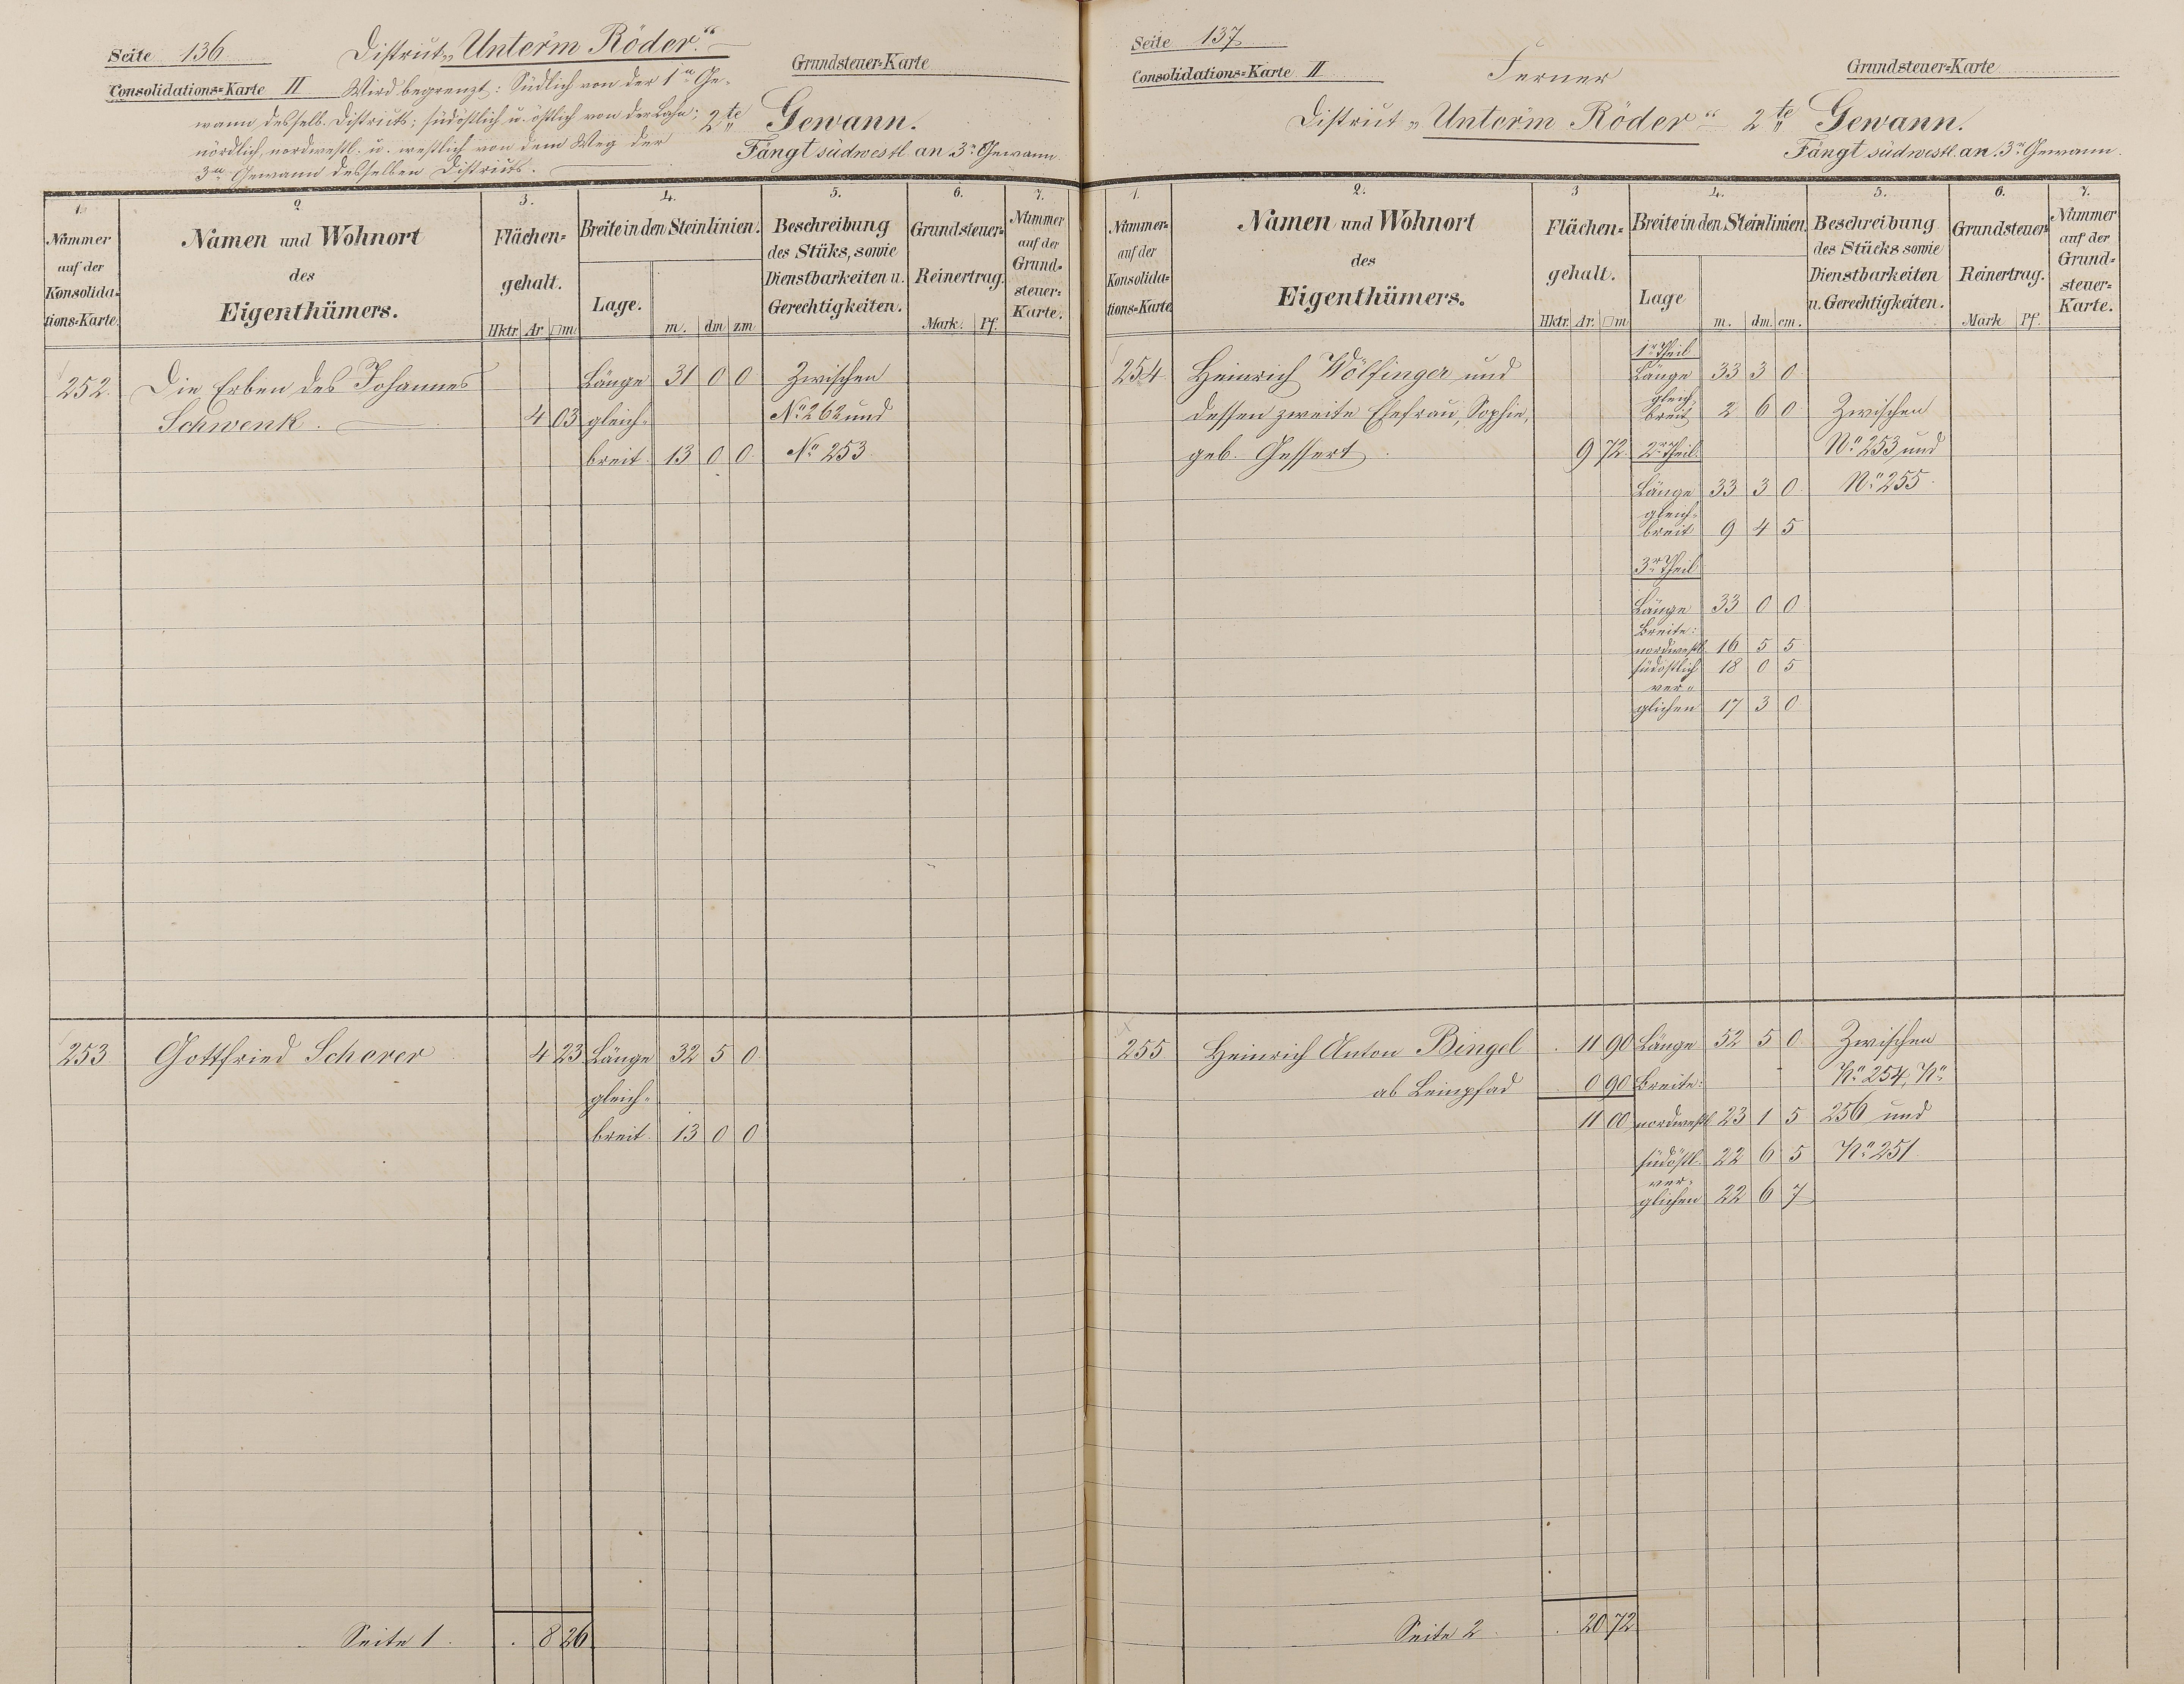 Seite 136
Distrikt „Unter'm Röder."
Grundsteuer-Karte
Consolidations-Karte II
Wird begrenzt: Südlich von der 1n Ge-
wann desselb. Distrikts; südöstlich u. östlich von der Lahn;
nördlich, nordwestl. u. westlich von dem Weg der
3n Gewann desselben Distrikts.
2te Gewann.
Fängt südwestl. an 3r Gewann.
1. 2. 3. 4. 5. 6. 7.
Nummer auf der Konsolida-tions-Karte.
Namen und Wohnort des Eigenthümers.
Flächen-gehalt.
Hktr. Ar □m
Breite in den Steinlinien.
Lage. m. dm zm
Beschreibung des Stüks, sowie Dienstbarkeiten u. Gerechtigkeiten.
Grundsteuer-Reinertrag.
Mark. Pf.
Nummer auf der Grund-steuer-Karte.
252. Die Erben des Johannes Länge 31 0 0 Zwischen
Schwenk. 4 03 gleich- No 262 und
breit 13 0 0 No 253
253 Gottfried Scherer 4 23 Länge 32 5 0
gleich-
breit 13 0 0
Seite 1. 8 26
Seite 137
Ferner
Grundsteuer-Karte
Consolidations-Karte II
Distrikt „Unter'm Röder" 2te Gewann.
Fängt südwestl. an 3r Gewann.
1. 2. 3 4. 5. 6. 7.
Nummer auf der Konsolida-tions-Karte
Namen und Wohnort des Eigenthümers.
Flächen-gehalt.
Hktr. Ar. □m
Breite in den Steinlinien.
Lage m. dm. cm.
Beschreibung des Stücks sowie Dienstbarkeiten u. Gerechtigkeiten.
Grundsteuer-Reinertrag.
Mark Pf.
Nummer auf der Grund-steuer-Karte.
1r Theil
254 Heinrich Wölfinger und Länge 33 3 0
dessen zweite Ehefrau, Sophie, gleich breit 2 6 0 Zwischen
geb. Gessert 9 72 2r Theil No 253 und
Länge 33 3 0 No 255
gleich-
breit 9 4 5
3r Theil
Länge 33 0 0
Breite:
nordwestl. 16 5 5
südöstlich 18 0 5
ver-
glichen 17 3 0
255 Heinrich Anton Bingel 11 90 Länge 52 5 0 Zwischen
ab Leinpfad 0 90 Breite: No 254, No
11 00 nordwestl 23 1 5 256 und
südöstl. 22 6 5 No 251
ver-
glichen 22 6 7
Seite 2 20 72